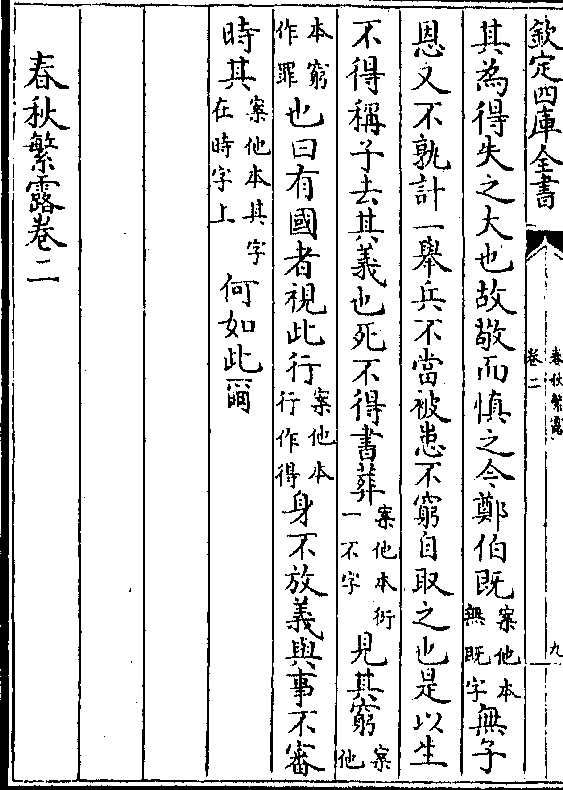 欽定四庫全書
春秋繁露
卷二
九
其為得失之大也故敬而慎之今鄭伯既案他本無既字無子
恩又不孰計一舉兵不當被患不窮自取之也是以生
不得稱子去其義也死不得書葬案他本衍一不字見其窮案他
本窮作罪也曰有國者視此行案他本行作得身不放義與事不審
時其案他本其字在時字上何如此爾
春秋繁露卷二